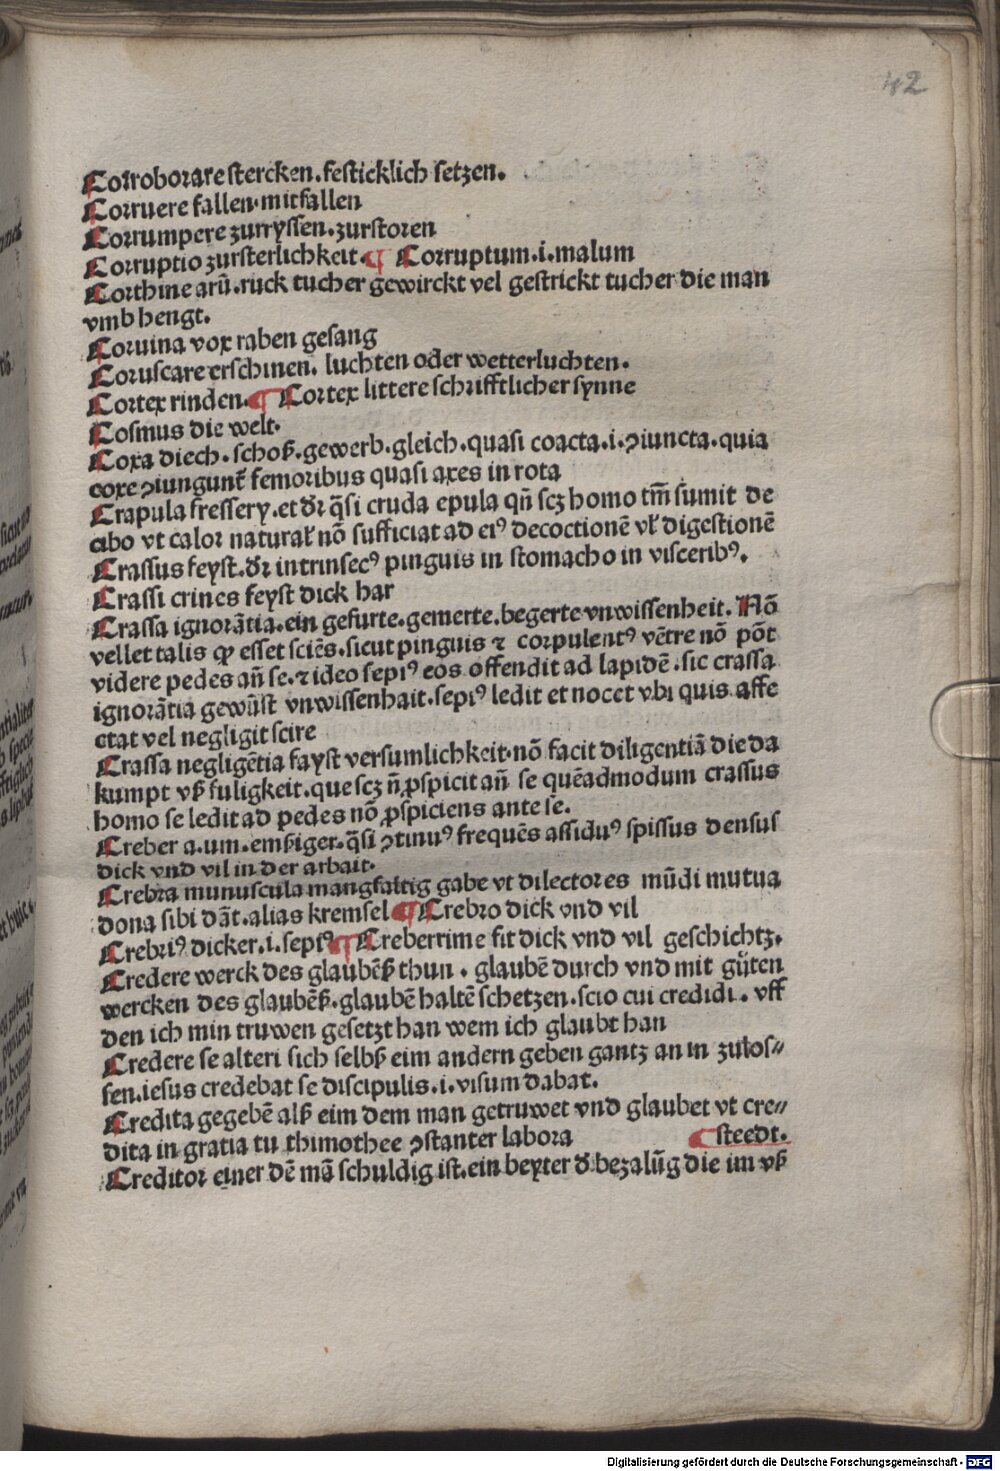 42
Corroborare stercken. festicklich setzen.
Corruere fallen. mitfallen
Corrumpere zurryssen. zurstoren
Corruptio zursterlichkeit. ¶ Corruptum .i. malum
Corthine arū. ruck tucher gewirckt vel gestrickt tucher die man
vmb hengt.
Coruina vox raben gesang
Coruscare erschinen. luchten oder wetterluchten.
Cortex rinden. ¶ Cortex littere schrifftlicher synne
Cosmus die welt.
Coxa diech. schoß. gewerb. gleich. quasi coacta .i. ꝯiuncta. quia
coxe ꝯiungunt̄ femoribus quasi axes in rota
Crapula fressery. et dr̄ q̄si cruda epula qn̄ scꝫ homo tm̄ sumit de
cibo vt calor natural̄ nō sufficiat ad eiꝰ decoctionē vl̄ digestionē
Crassus feyst. dr̄ intrinsecꝰ pinguis in stomacho in visceribꝰ.
Crassi crines feyst dick har
Crassa ignorātia. ein gefurte. gemerte. begerte vnwissenheit. Nō
vellet talis ꝙ esset sciēs. sicut pinguis ⁊ corpulentꝰ vētre nō pōt
videre pedes an̄ se. ⁊ ideo sepiꝰ eos offendit ad lapidē. sic crassa
ignorātia gewūst vnwissenhait. sepiꝰ ledit et nocet vbi quis affe
ctat vel negligit scire
Crassa negligētia fayst versumlichkeit. nō facit diligentiā die da
kumpt vß fuligkeit. que scꝫ n̄ ꝓspicit an̄ se quēadmodum crassus
homo se ledit ad pedes nō ꝓspiciens ante se.
Creber a. um. emßiger. q̄si ꝯtinuꝰ frequēs assiduꝰ spissus densus
dick vnd vil in der arbait.
Crebra munuscula mangfaltig gabe vt dilectores mūdi mutua
dona sibi dāt. alias kremsel ¶ Crebro dick vnd vil
Crebriꝰ dicker .i. sepiꝰ ¶ Creberrime fit dick vnd vil geschichtz.
Credere werck des glaubēß thun. glaubē durch vnd mit guͦten
wercken des glaubēß. glaubē haltē schetzen. scio cui credidi. vff
den ich min truwen gesetzt han wem ich glaubt han
Credere se alteri sich selbß eim andern geben gantz an in zulos⸗
sen. iesus credebat se discipulis .i. visum dabat.
Credita gegebē alß eim dem man getruwet vnd glaubet vt cre⸗
dita in gratia tu thimothee ꝯstanter labora ¶ steedt.
Creditor einer dē mā schuldig ist. ein beyter d̄ bezalūg die im vß
Digitalisierung gefördert durch die Deutsche Forschungsgemeinschaft - DFG